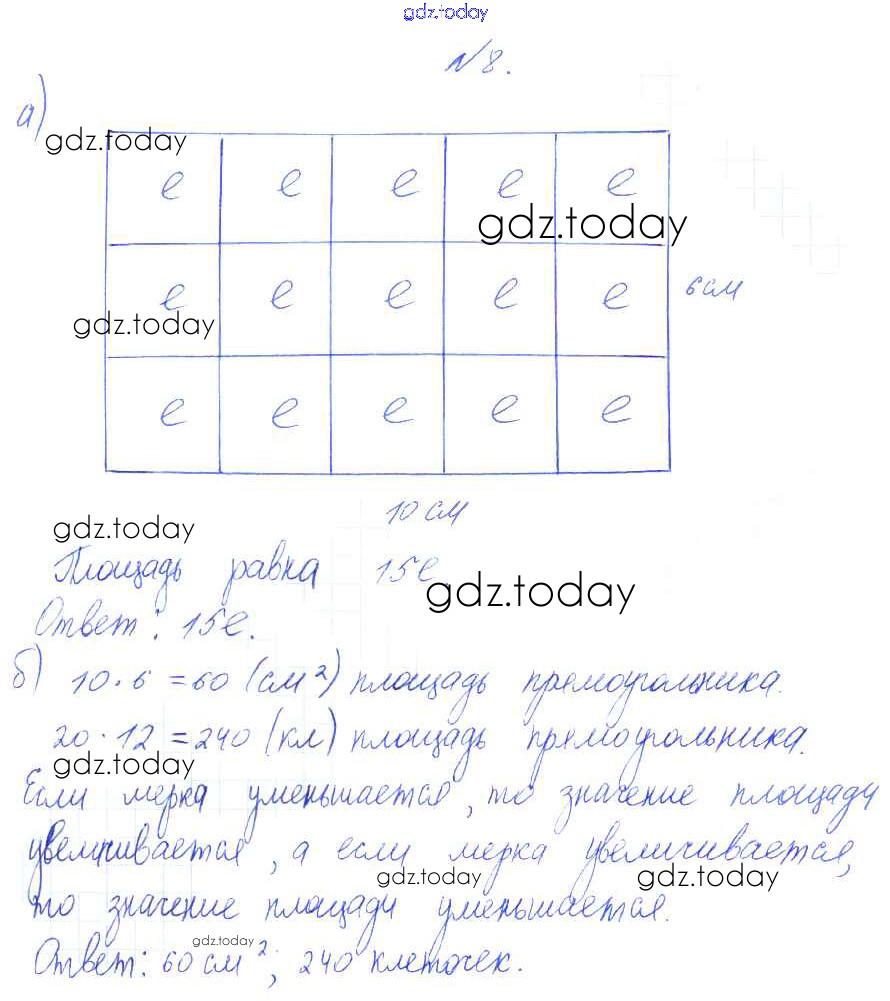 gdz.today
№8.
а)
gdz.today
е е е е е
gdz.today
е е е е е
6 см
gdz.today
е е е е е
10 см
gdz.today
Площадь равна 15е
gdz.today
Ответ: 15е.
б) 10·6 = 60 (см²) площадь прямоугольника.
20·12 = 240 (кл) площадь прямоугольника.
gdz.today
Если мерка уменьшается, то значение площади
увеличивается, а если мерка увеличивается,
gdz.today gdz.today
то значение площади уменьшается.
gdz.today
Ответ: 60 см²; 240 клеточек.